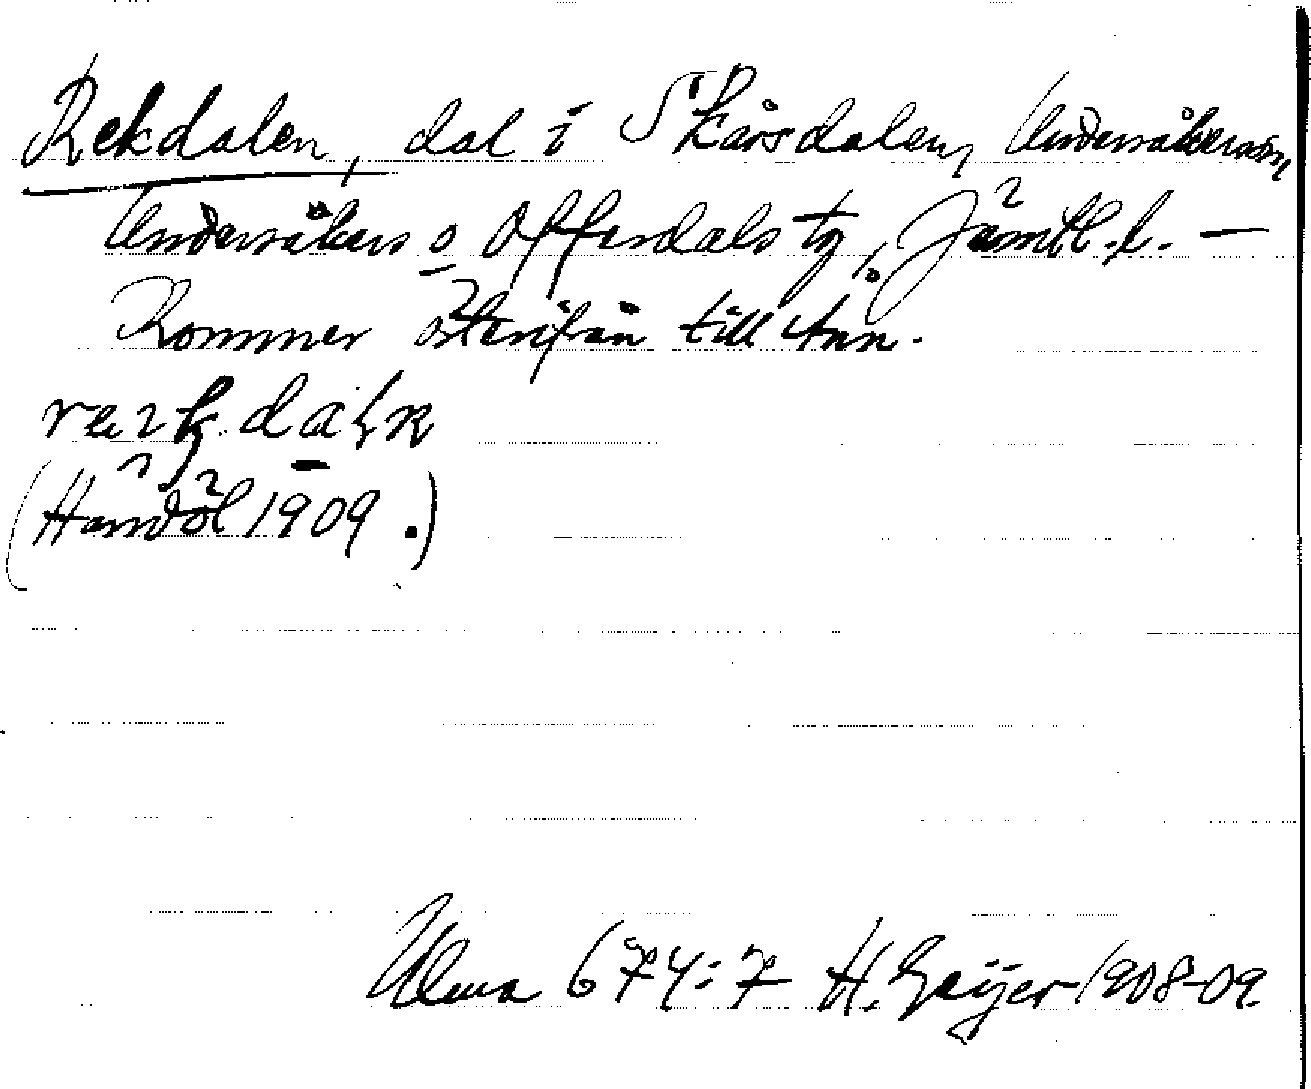 Rekdalen, dal i Skärsdalen, Undersåkers sn,
Undersåkers o Offerdals tg, Jämtl. l. —
Kommer österifrån till Ånn.
(Handöl 1909.)
Ulma 674:7 H. Geijer 1908-09.